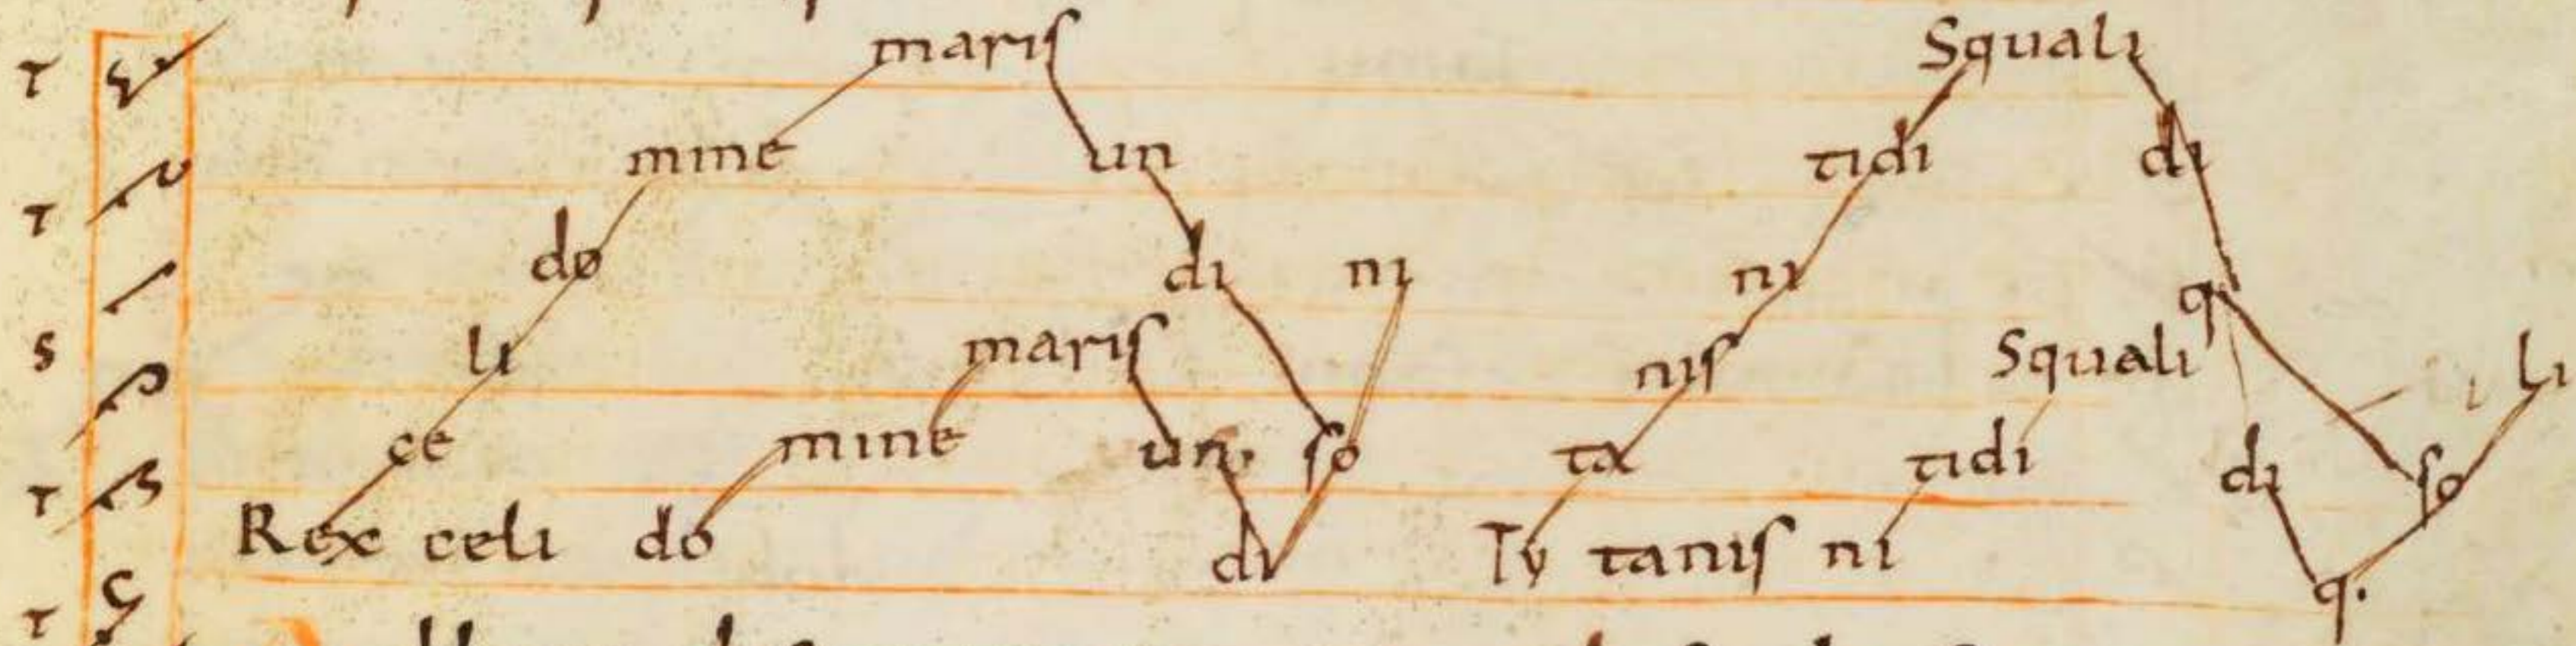 T maris Squali
mine un tidi di
T do di ni ni q
S li maris nis Squali li
T ce mine un. so ta tidi di so
Rex celi do di Ty tanis ni q.
T